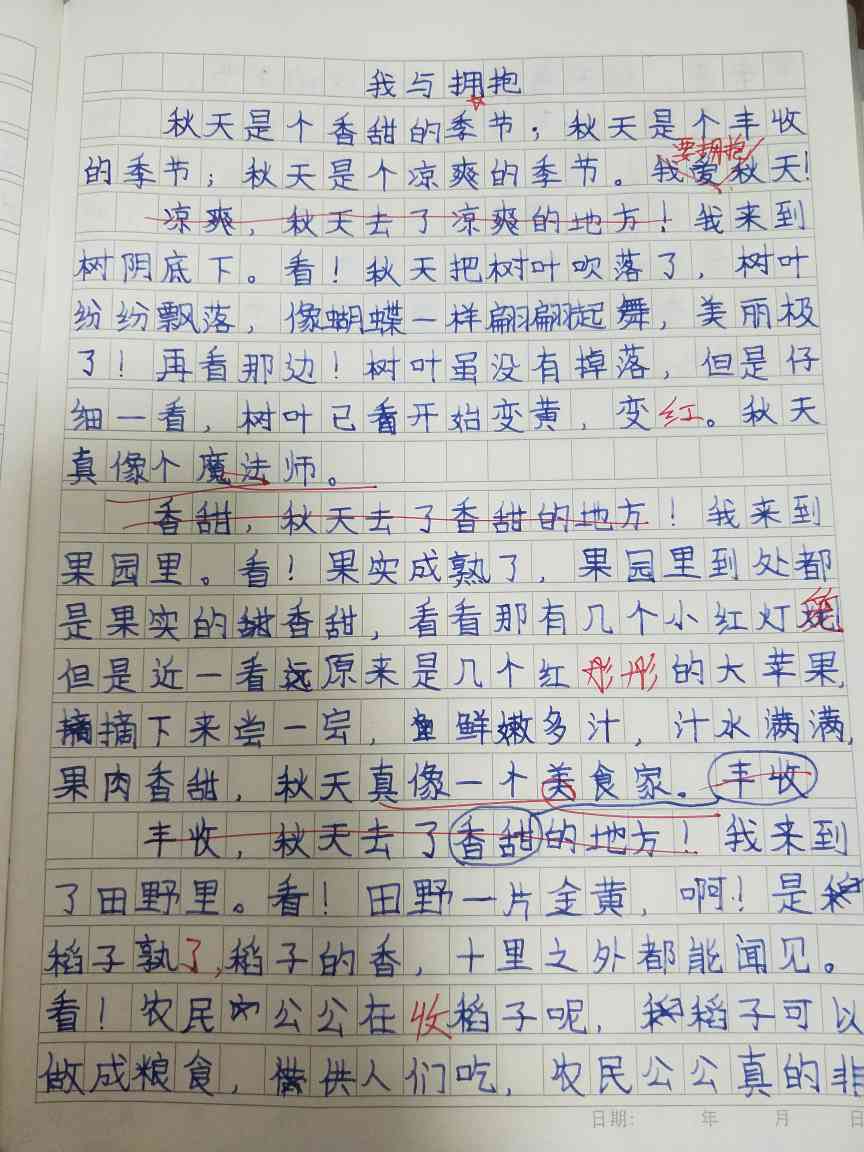 我与拥抱
秋天是个香甜的季节；秋天是个丰收
要拥抱
的季节；秋天是个凉爽的季节。我爱秋天！
凉爽，秋天去了凉爽的地方！我来到
树阴底下。看！秋天把树叶吹落了，树叶
纷纷飘落，像蝴蝶一样翩翩起舞，美丽极
了！再看那边！树叶虽没有掉落，但是仔
细一看，树叶已开始变黄，变红。秋天
真像个魔法师。
香甜，秋天去了香甜的地方！我来到
果园里。看！果实成熟了，果园里到处都
是果实的香甜，看看那有几个小红灯笼
但是近一看原来是几个红彤彤的大苹果，
摘下来尝一尝，鲜嫩多汁，汁水满满，
果肉香甜，秋天真像一个美食家。丰收
丰收，秋天去了香甜的地方！我来到
了田野里。看！田野一片金黄，啊！是
稻子孰了，稻子的香，十里之外都能闻见。
看！农民公公在收稻子呢，稻子可以
做成粮食，供人们吃，农民公公真的非
日期： 年 月 日